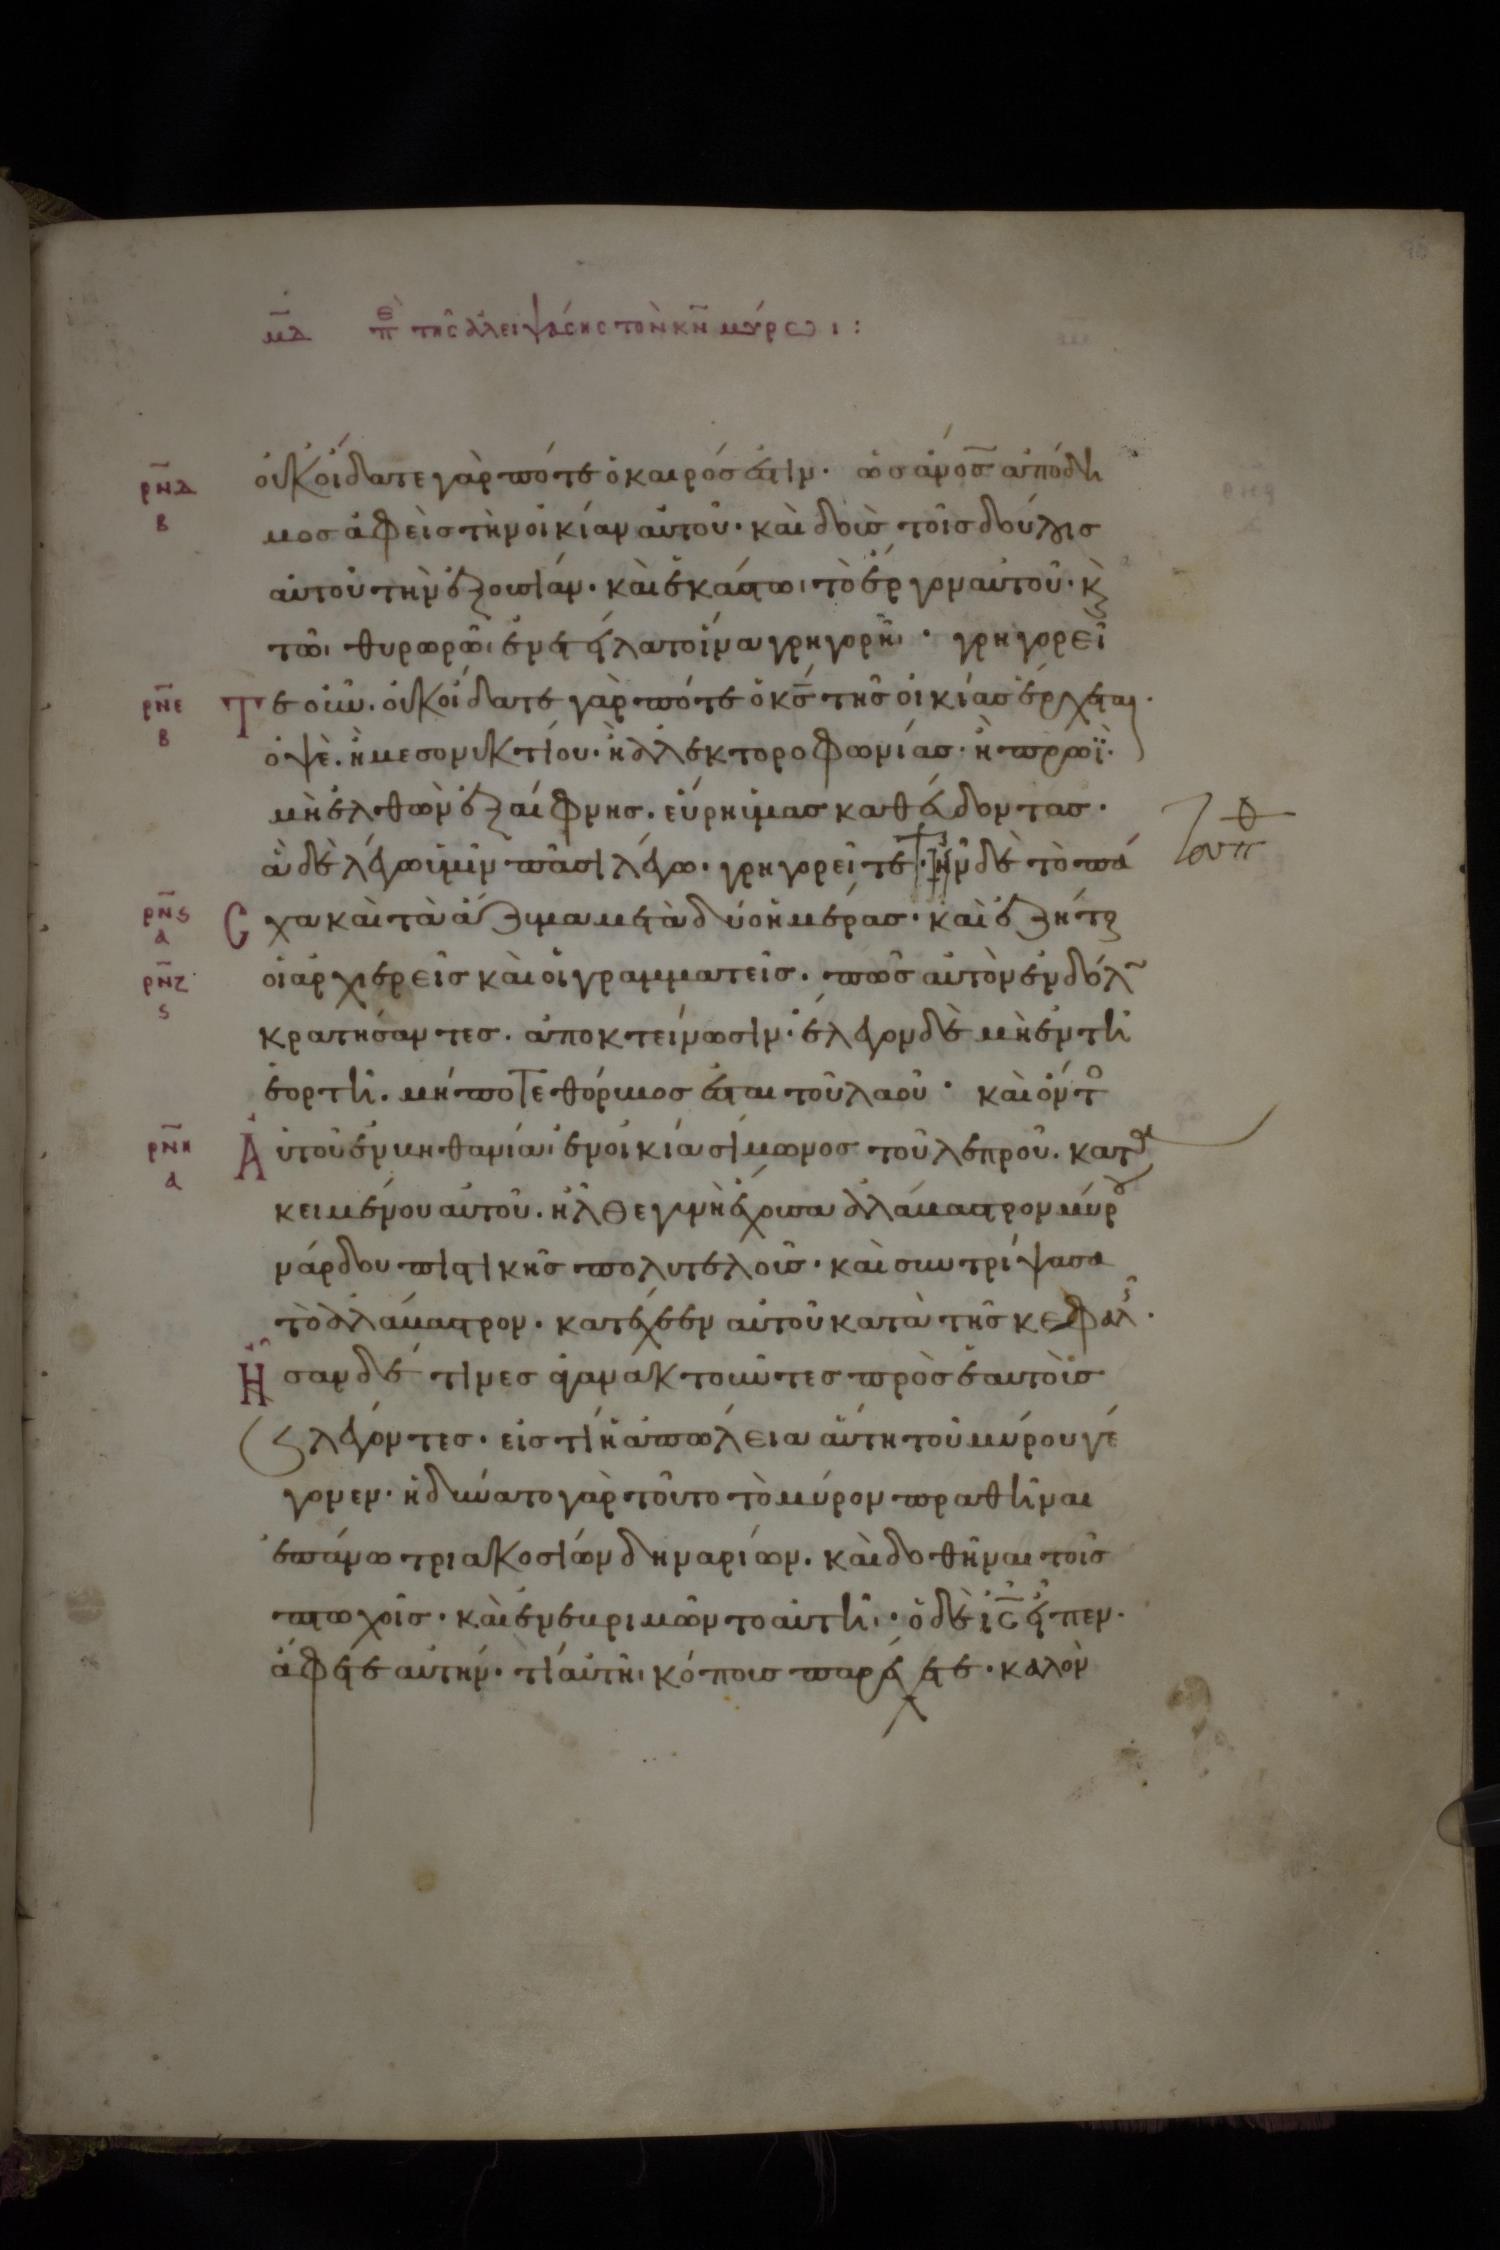 μδ περὶ τῆς ἀλειψάσης τὸν κν μύρωι :
ρνδ β οὐκ οἴδατε γὰρ πότε ὁ καιρός ἐστιν · ὡς ανος ἀπόδη
μος ἀφεὶς τὴν οἰκίαν αὐτοῦ · καὶ δοὺς τοῖς δούλοις
αὐτοῦ τὴν ἐξουσίαν · καὶ ἑκάστωι τὸ ἔργον αὐτοῦ · κ
τῶι θυρωρῶι ἐνετείλατο ἵνα γρηγορῆι · γρηγορεῖ
ρνε β Τε οὖν . οὐκ οἴδατε γὰρ πότε ὁ κς τῆς οἰκίας ἔρχεται ·
ὀψὲ . ἢ μεσονυκτίου · ἢ ἀλεκτοροφωνίας · ἢ πρωῒ ·
μὴ ἐλθὼν ἐξαίφνης . εὕρη ὑμᾶς καθεύδοντας ·
ἃ δὲ λέγω ὑμῖν πᾶσι λέγω · γρηγορεῖτε · ἦν δὲ τὸ πά
ρνς α Cχα καὶ τὰ ἄζυμα μετὰ δύο ἡμέρας · καὶ ἐζήτ
ρνζ ς οἱ ἀρχιερεῖς καὶ οἱ γραμματεῖς . πῶς αὐτὸν ἐν δόλ
κρατήσαντες . ἀποκτείνωσιν · ἔλεγον δὲ μὴ ἐν τῆ
ἑορτῆ . μήποτε θόρυβος ἔσται τοῦ λαοῦ · καὶ ὄντ
ρνη α Αὐτοῦ ἐν βηθανίαι ἐν οἰκία σίμωνος τοῦ λεπροῦ . κατα
κειμένου αὐτοῦ . ἦλθε γυνὴ ἔχουσα ἀλάβαστρον μύρου
νάρδου πιστικῆς πολυτελοῦς · καὶ συντρίψασα
τὸ ἀλάβαστρον . κατέχεεν αὐτοῦ κατὰ τῆς κεφαλῆς ·
Ἦσαν δέ τινες ἀγανακτοῦντες πρὸς ἑαυτοὺς
λέγοντες · εἰς τί ἡ ἀπώλεια αὕτη τοῦ μύρου γέ
γονεν · ἠδύνατο γὰρ τοῦτο τὸ μύρον πραθῆναι
ἐπάνω τριακοσίων δηναρίων . καὶ δοθῆναι τοῖς
πτωχοῖς · καὶ ἐνεβριμῶντο αὐτῆι · ὁ δὲ ις εἶπεν ·
ἄφετε αὐτήν · τί αὐτῆι κόπους παρέχετε · καλὸν